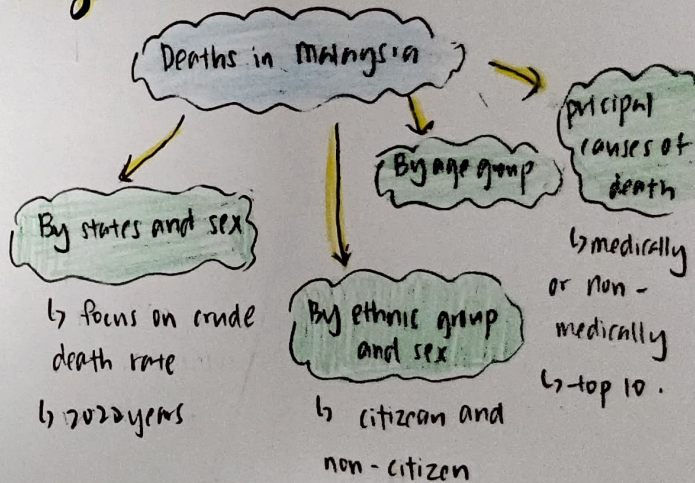 Deaths in Malaysia
By states and sex
↳ focus on crude
death rate
↳ 2022 years
By ethnic group
and sex
↳ citizean and
non-citizen
By age group
pricipal
causes of
death
↳ medically
or non-
medically
↳ top 10.